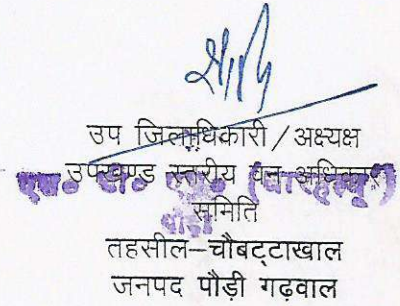 उप जिलाधिकारी / अक्ष्यक्ष
उपखण्ड स्तरीय वन अधिकार
समिति
तहसील-चौबट्टाखाल
जनपद पौड़ी गढवाल